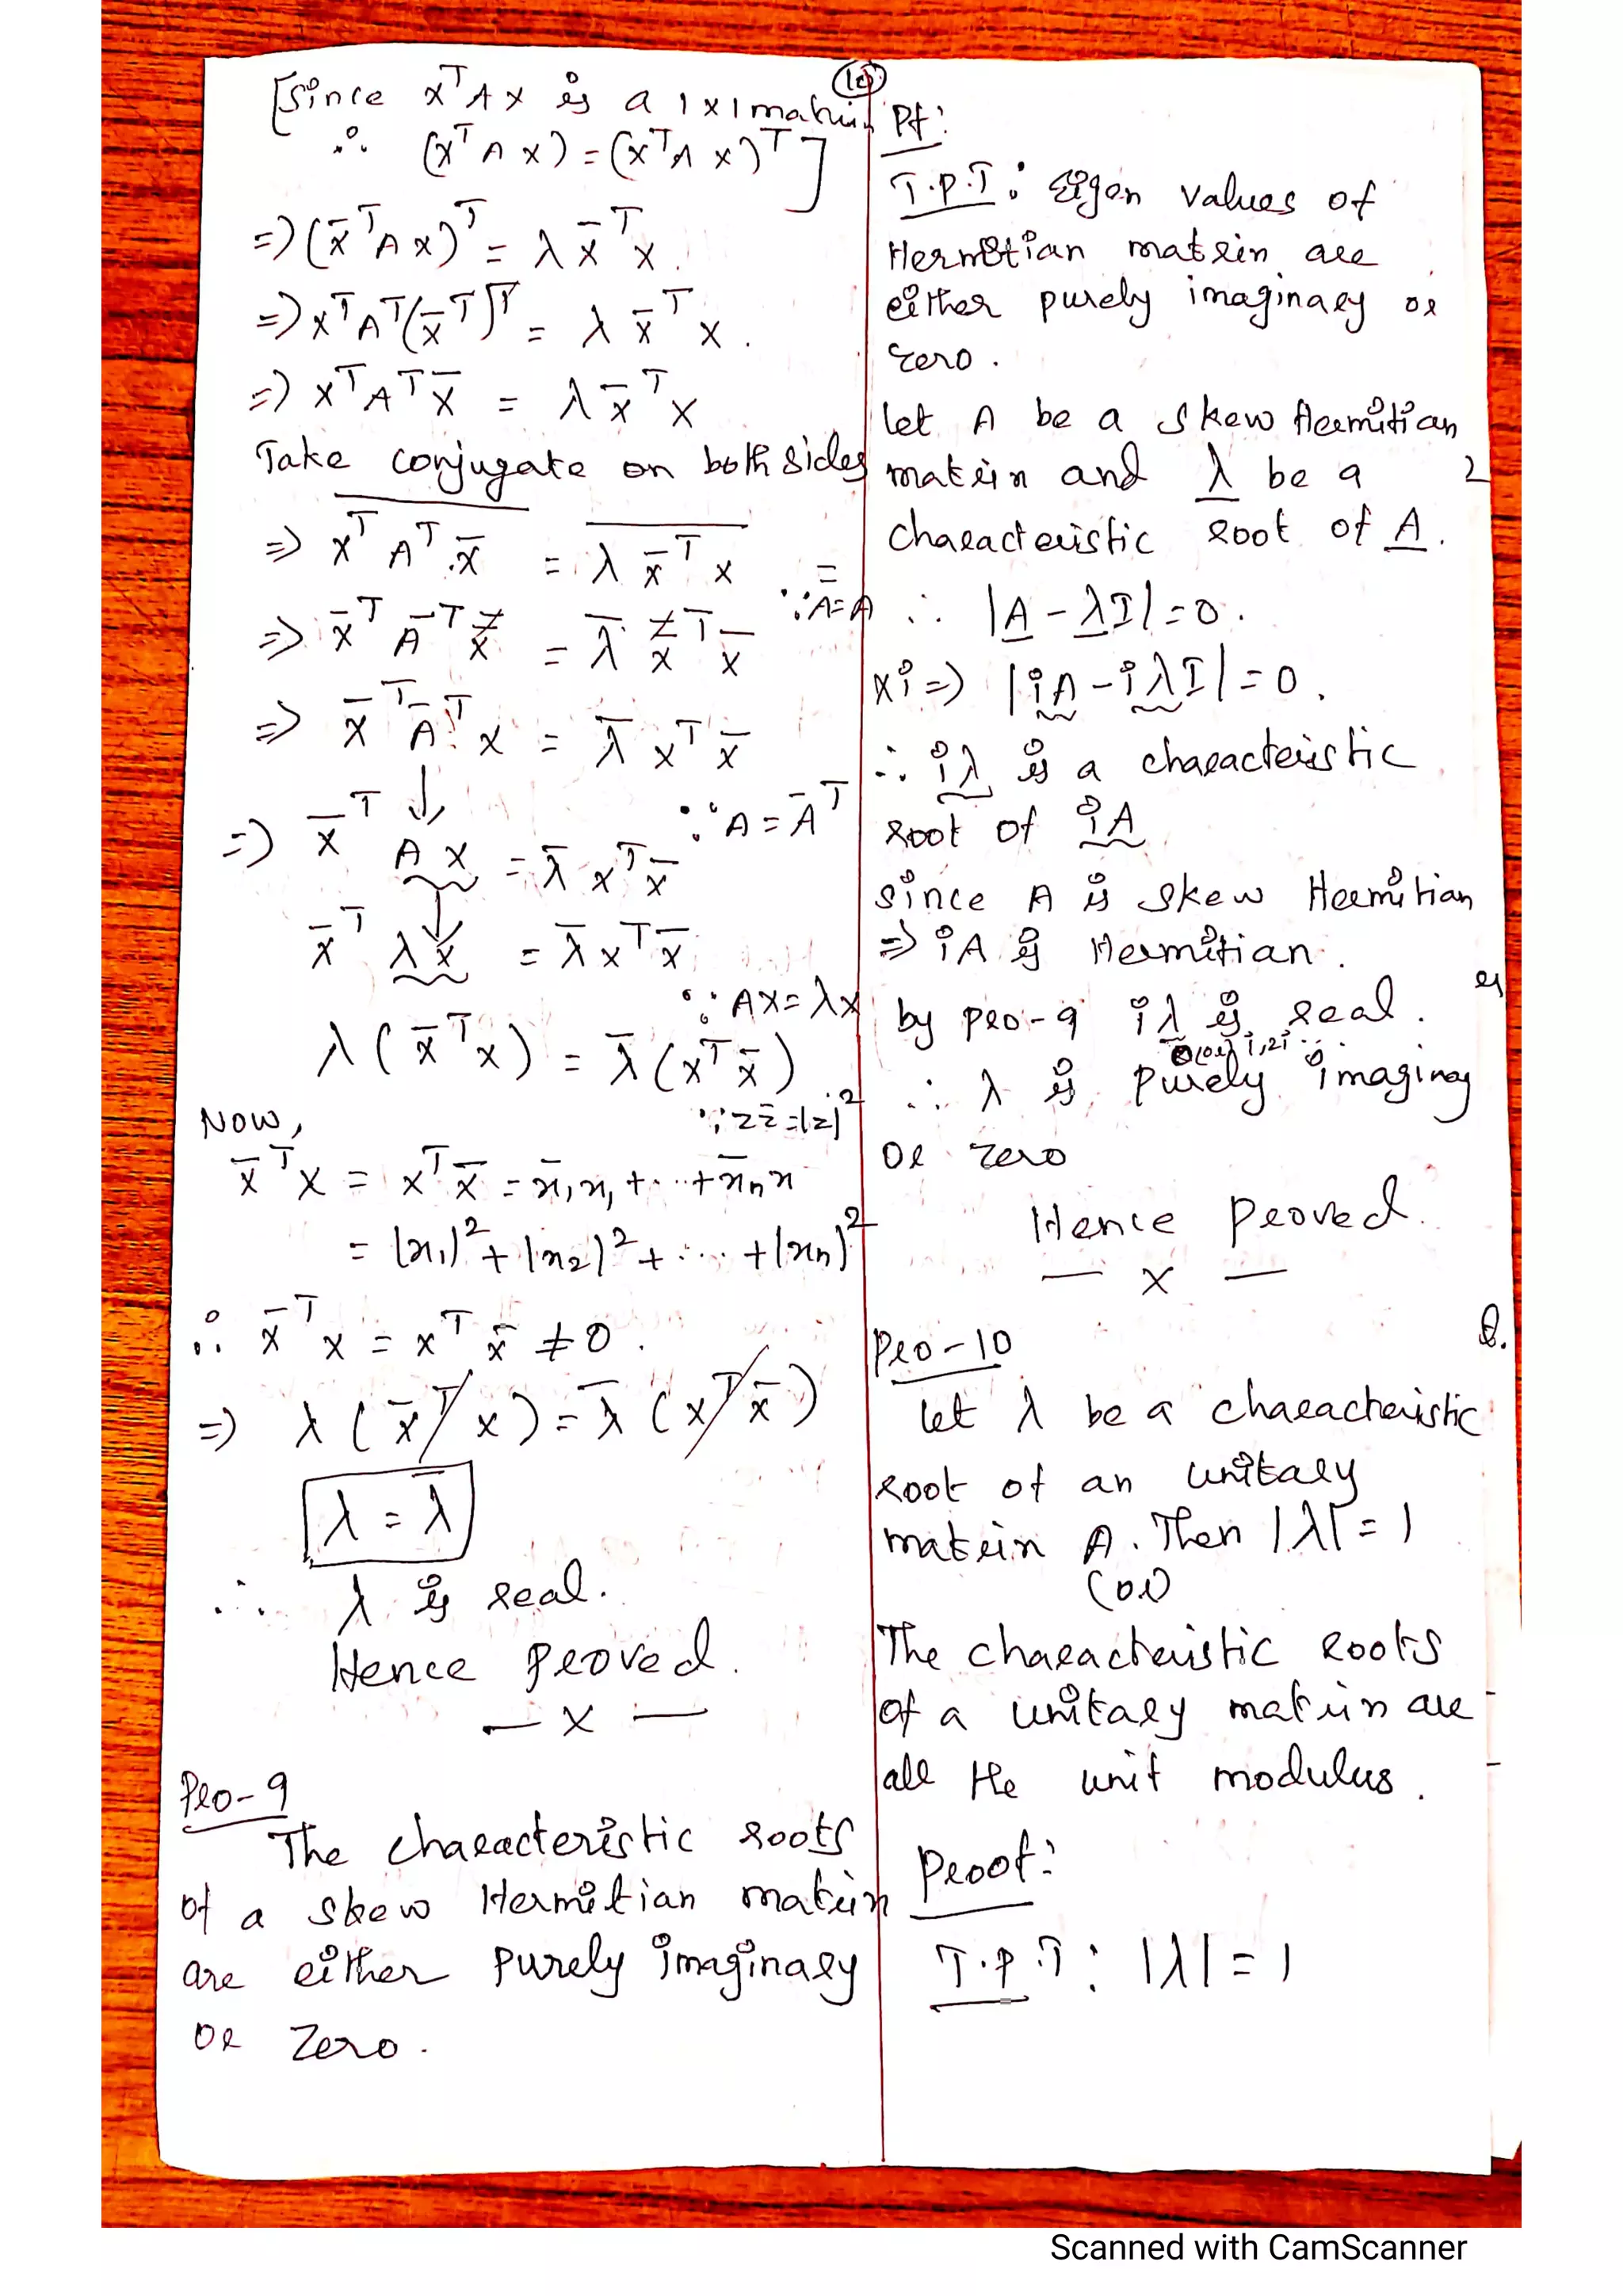 (10)
[Since x^T A x is a 1x1 matrix
∴ (x^T A x) = (x^T A x)^T]
=> (x̄^T A x)^T = λ x̄^T x.
=> x^T A^T (x̄^T)^T = λ x̄^T x.
=> x^T A^T x̄ = λ x̄^T x
Take conjugate on both sides
=> \overline{x^T A^T . x̄} = \overline{λ x̄^T x}
=> x̄^T Ā^T x̿ = λ̄ x̿^T x̄ ∵ A̿ = A
=> x̄^T Ā^T x = λ̄ x^T x̄
=> x̄^T A x = λ̄ x^T x̄ ∵ A = Ā^T
x̄^T λx = λ̄ x^T x̄
∵ AX = λx
λ(x̄^T x) = λ̄(x^T x̄)
Now, ∵ z z̄ = |z|^2
x̄^T x = x^T x̄ = x̄, x, + ... + x̄n x
= |x1|^2 + |x2|^2 + ... + |xn|^2
∴ x̄^T x = x^T x̄ ≠ 0.
=> λ(x̄^T x) = λ̄(x^T x̄)
λ = λ̄
∴ λ is real.
Hence proved.
— x —
Pro-9
The characteristic roots
of a skew Hermitian matrix
are either purely imaginary
or zero.
Pf:
T.P.T: Eigen values of
Hermitian matrix are
either purely imaginary or
zero.
let A be a skew Hermitian
matrix and λ be a
characteristic root of A.
∴ |A - λI| = 0.
xi => |iA - iλI| = 0.
∴ iλ is a characteristic
root of iA
since A is skew Hermitian
=> iA is Hermitian.
by pro-9 iλ is real.
0(or) i,2i...
∴ λ is purely imaginary
or zero
Hence proved.
— x —
Pro-10
let λ be a characteristic
root of an unitary
matrix A. Then |λ| = 1
(or)
The characteristic roots
of a unitary matrix are
all the unit modulus.
Proof:
T.P.T: |λ| = 1
Scanned with CamScanner